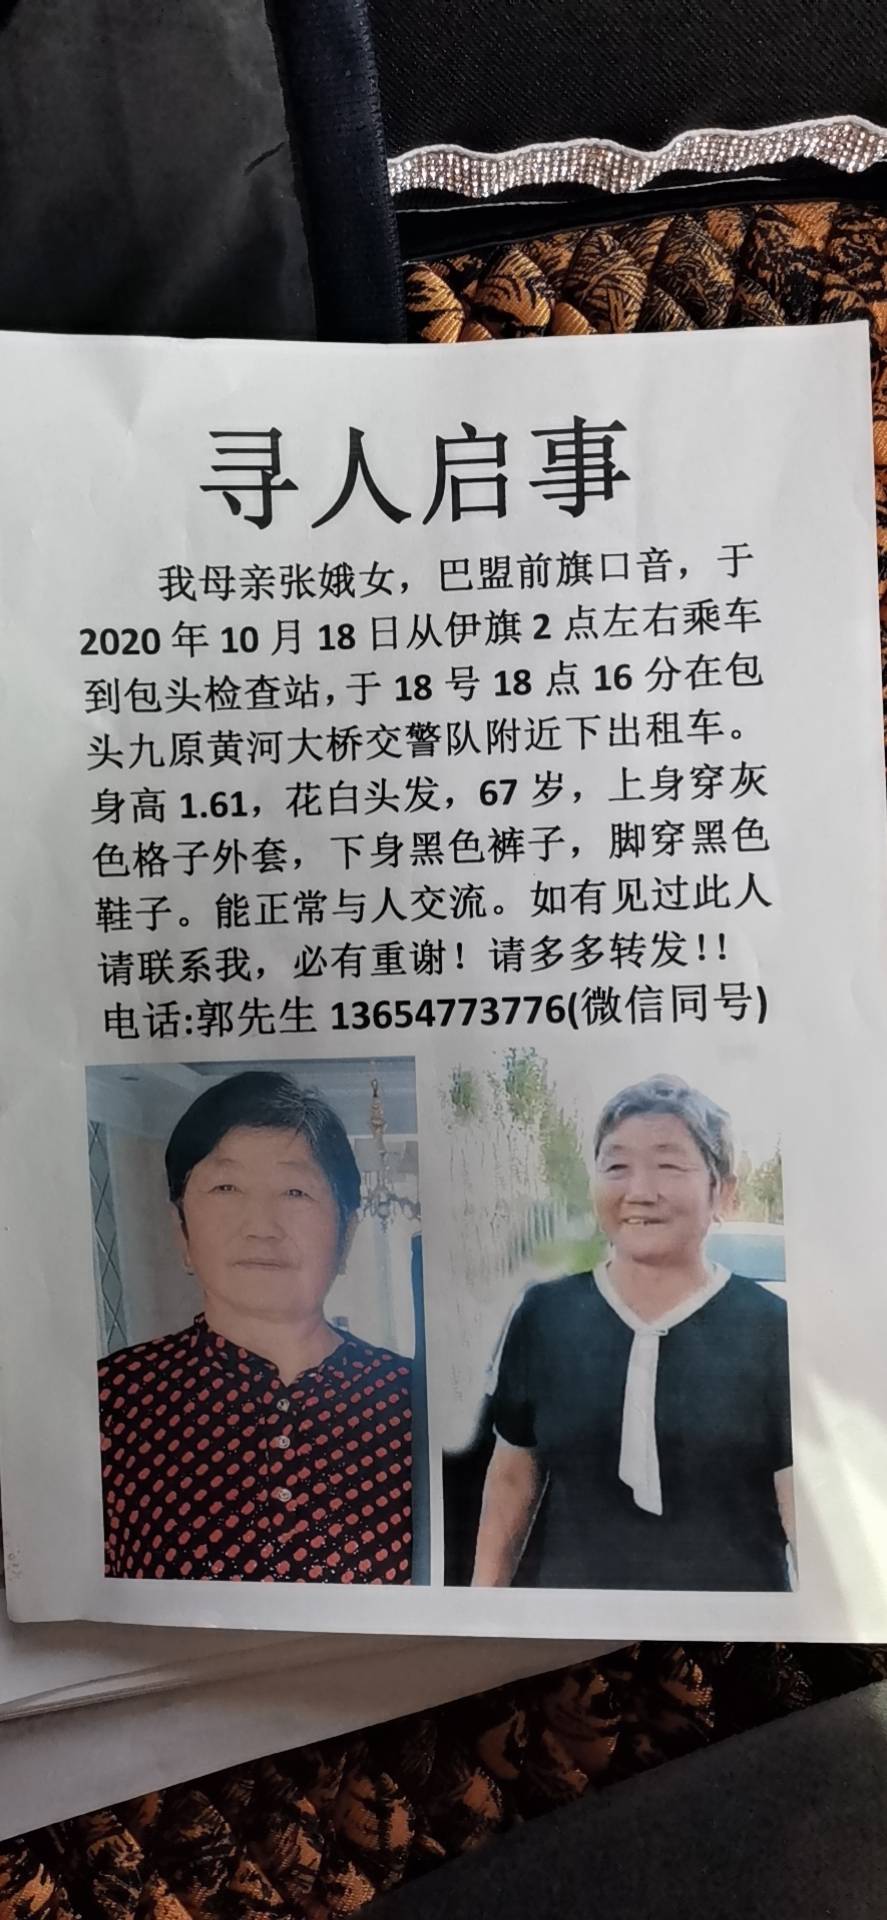 寻人启事
我母亲张娥女，巴盟前旗口音，于
2020年10月18日从伊旗2点左右乘车
到包头检查站，于18号18点16分在包
头九原黄河大桥交警队附近下出租车。
身高1.61，花白头发，67岁，上身穿灰
色格子外套，下身黑色裤子，脚穿黑色
鞋子。能正常与人交流。如有见过此人
请联系我，必有重谢！请多多转发！！
电话:郭先生13654773776(微信同号)